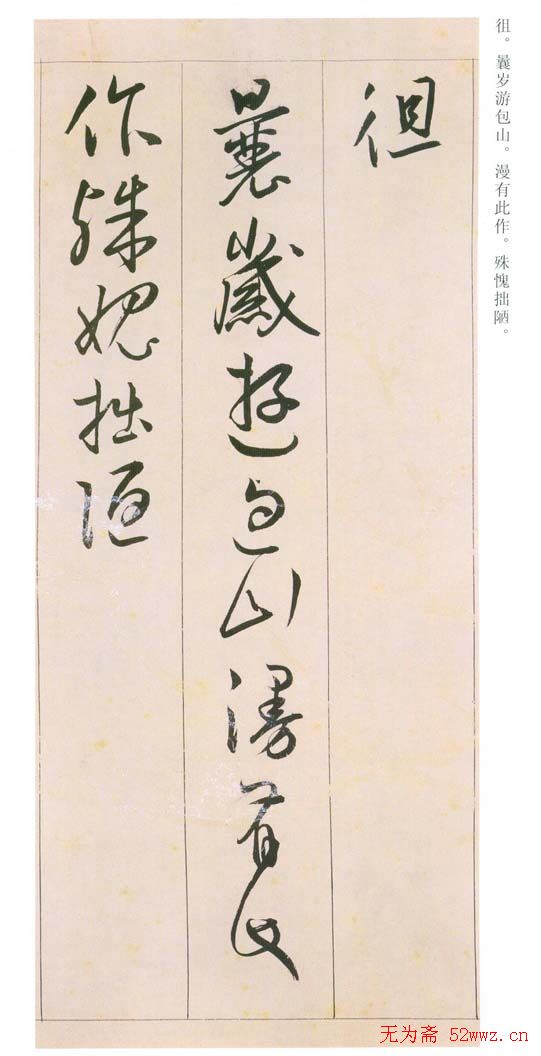 徂。曩岁游包山。漫有此作。殊愧拙陋。
徂
曩歲遊包山漫有此
作殊媿拙陋
无为斋 52wwz.cn